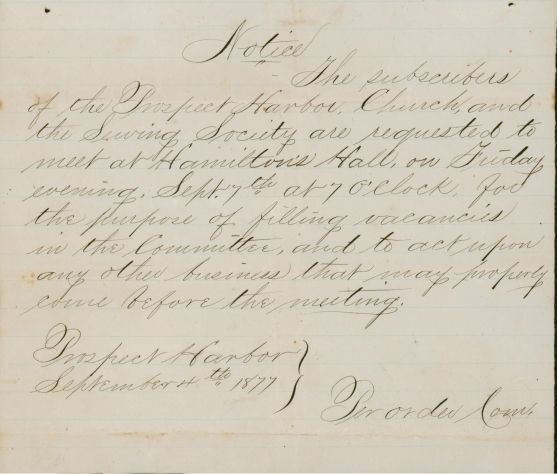 Notice
The subscribers
of the Prospect Harbor, Church, and
the Sewing Society are requested to
meet at Hamiltons Hall, on Friday
evening, Sept. 7th at 7 O'Clock, for
the purpose of filling vacancies
in the Committee, and to act upon
any other business that may properly
come before the meeting.
Prospect Harbor
September 4th 1877
Per order Com.